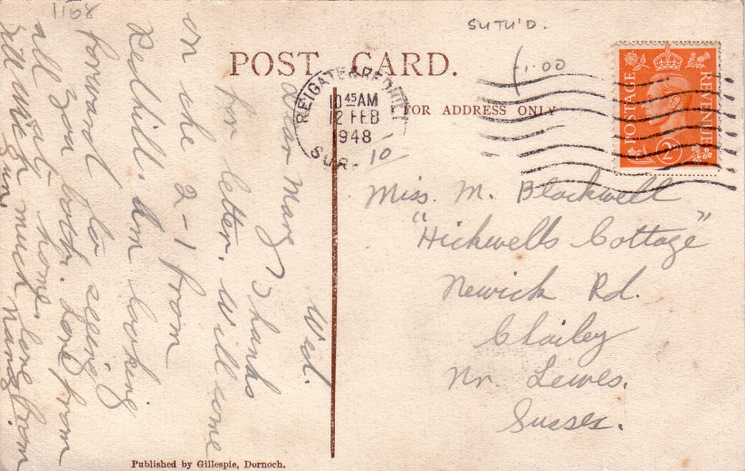 1168
SUTH'D.
£1.00
POST CARD.
FOR ADDRESS ONLY
REIGATE & REDHILL
10 45 AM
12 FEB
1948
SUR.
10
POSTAGE REVENUE
2D
Wed.
Dear Mary Thanks
for letter. Will come
on the 2-1 from
Redhill. Am looking
forward to seeing
you both. Love from
all at home
Till then much love from
Nana
Miss. M. Blackwell
"Hickwells Cottage"
Newick Rd.
Chailey
Nr. Lewes.
Sussex.
Published by Gillespie, Dornoch.